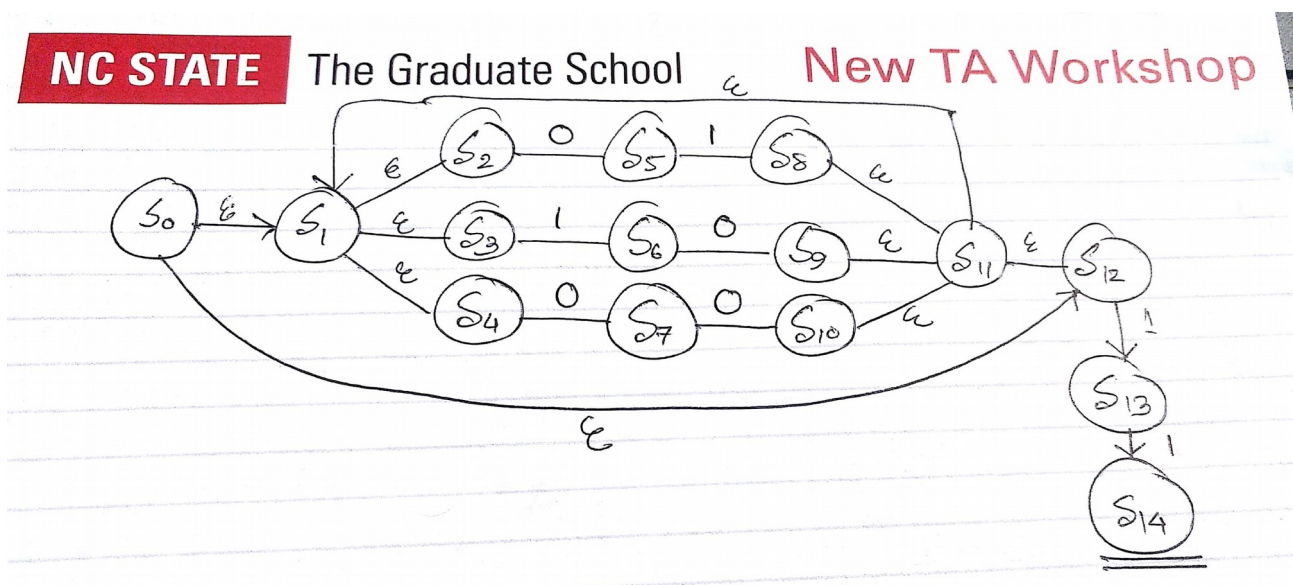 NC STATE The Graduate School New TA Workshop
ε
S2 0 S5 1 S8
ε ε
S0 ε S1 ε S3 1 S6 0 S9 ε S11 ε S12
ε ε
S4 0 S7 0 S10
1
S13
ε
1
S14